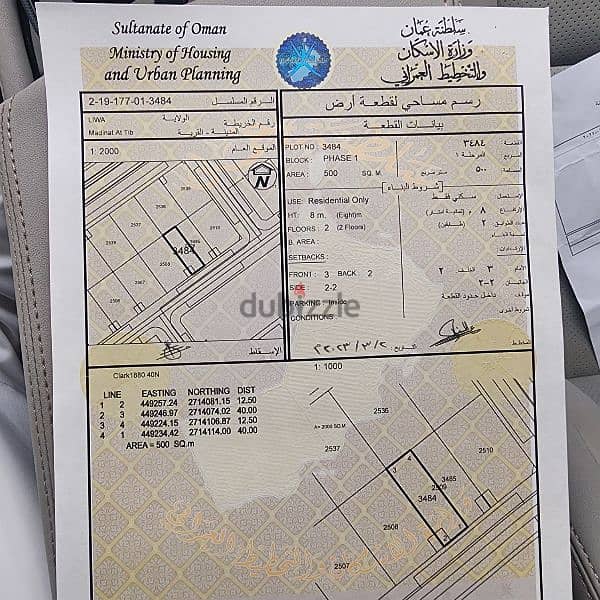 Sultanate of Oman
Ministry of Housing
and Urban Planning
سلطنة عمان
وزارة الإسكان
والتخطيط العمراني
2-19-177-01-3484 الرقم المسلسل
LIWA الولاية
Madinat At Tib المدينة - القرية رقم الخريطة
1: 2000 الموقع العام
N
2539
2510
2509
3485
3484
2508
الإسقاط
رسم مساحي لقطعة أرض
بيانات القطعة
PLOT NO : 3484 ٣٤٨٤ القطعة
BLOCK : PHASE 1 المرحلة ١ المربع
AREA : 500 SQ. M. متر مربع ٥٠٠ المساحة
شروط البناء
USE: Residential Only سكني فقط الاستعمال
HT: 8 m. (Eight)m ٨ م (ثمانية أمتار) الارتفاع
FLOORS : 2 (2 Floors) ٢ (طابقين) عدد الطوابق
B. AREA : مساحة البناء
SETBACKS : الارتدادات
FRONT : 3 BACK 2 ٢ الخلف ٣ الأمام
SIDE : 2-2 ٢-٢ الجانبي
PARKING : Inside داخل حدود القطعة موقف
CONDITIONS شروط أخرى
التاريخ ٢٠٢٣/٣/٢م
المخطط
dubizzle
Clark1880 40N
LINE EASTING NORTHING DIST
1 2 449257.24 2714081.15 12.50
2 3 449246.97 2714074.02 40.00
3 4 449224.15 2714106.87 12.50
4 1 449234.42 2714114.00 40.00
AREA = 500 SQ.m
1: 1000
2536
A= 2000 SQ.M
2537
2510
3485
2509
3484
2508
3
4
2
1